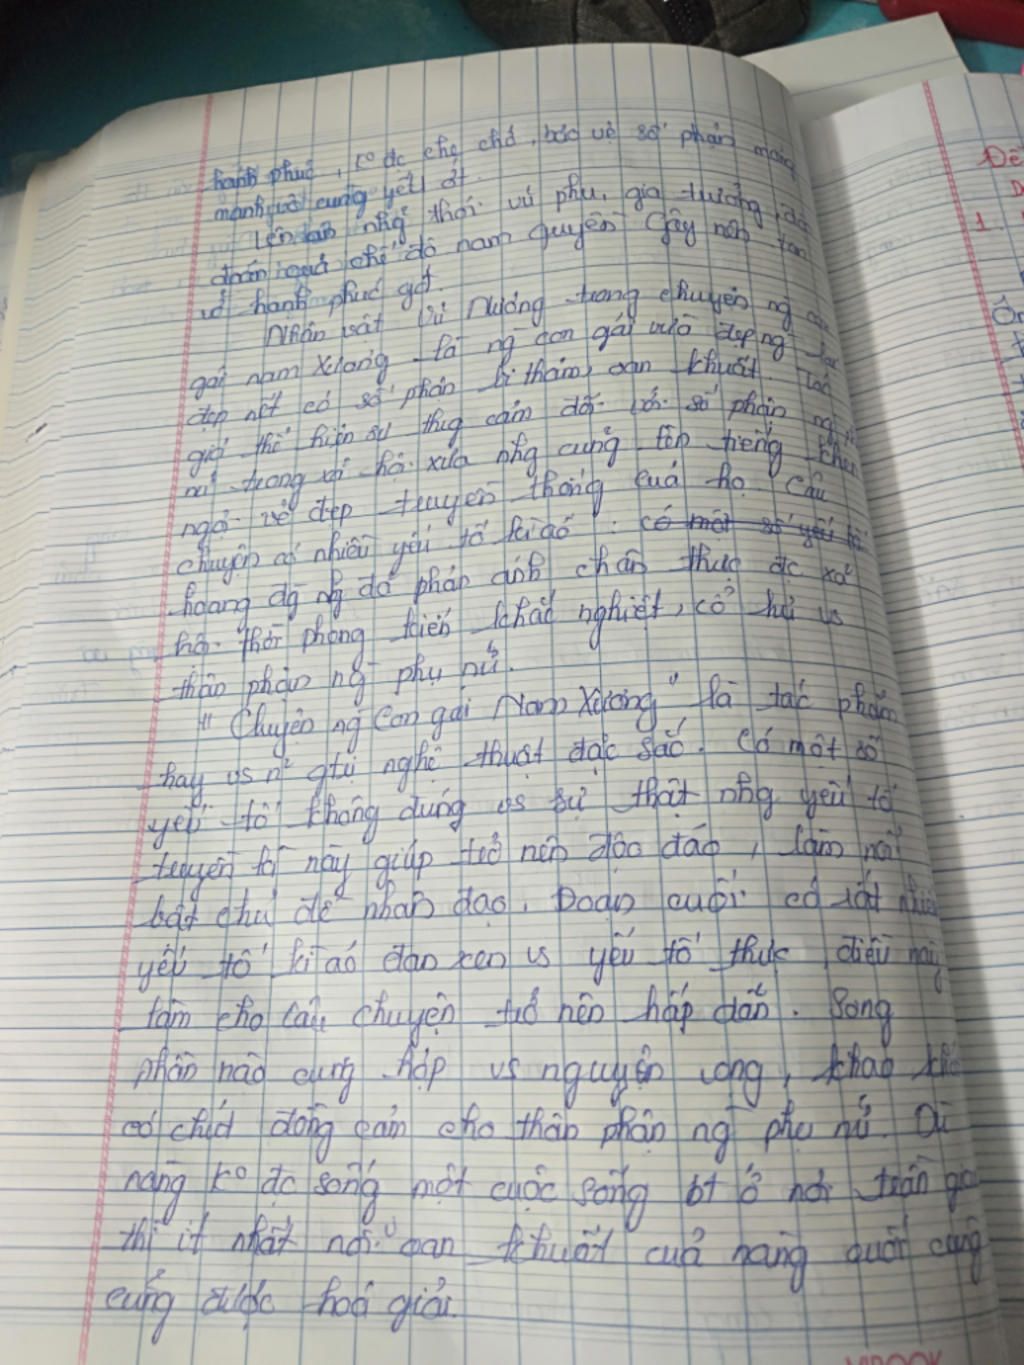 hạnh phúc, ko đc che chở, bảo vệ số phận mong
manh, vô cùng yếu ớt.
Lên án nhg thói vũ phu, gia trưởng, độc
đoán của chế độ nam quyền gây nên tan
vỡ hạnh phúc gđ.
Nhân vật Vũ Nương trong chuyện ng con
gái nam Xương là ng con gái vừa đẹp ng
đẹp nết có số phận bi thảm, oan khuất. Tác
giả thể hiện sự thg cảm đối với số phận ng
nữ trong xã hội xưa nhg cũng lên tiếng khen
ngợi vẻ đẹp truyền thống của họ. Câu
chuyện có nhiều yếu tố kì ảo : có một số yếu tố
hoang đg ng đã phản ánh chân thực đc xã
hội thời phong kiến khắc nghiệt, cổ hủ vs
thân phận ng phụ nữ.
" Chuyện ng con gái Nam Xương " là tác phẩm
hay vs n² gtrị nghệ thuật đặc sắc. Có một số
yếu tố không đúng vs sự thật nhg yếu tố
truyền kì này giúp trở nên độc đáo, làm nổi
bật chủ đề nhân đạo. Đoạn cuối có rất nhiều
yếu tố kì ảo đan xen vs yếu tố thực điều này
làm cho câu chuyện trở nên hấp dẫn. Song
phần nào cũng hợp vs nguyện vọng, khao khát
có chút đồng cản cho thân phận ng phụ nữ. Dù
nàng ko đc sống một cuộc sống bt ở nơi trần gian
thì ít nhất nỗi oan khuất của nàng cuối cùng
cũng được hoá giải.
Đề
1.